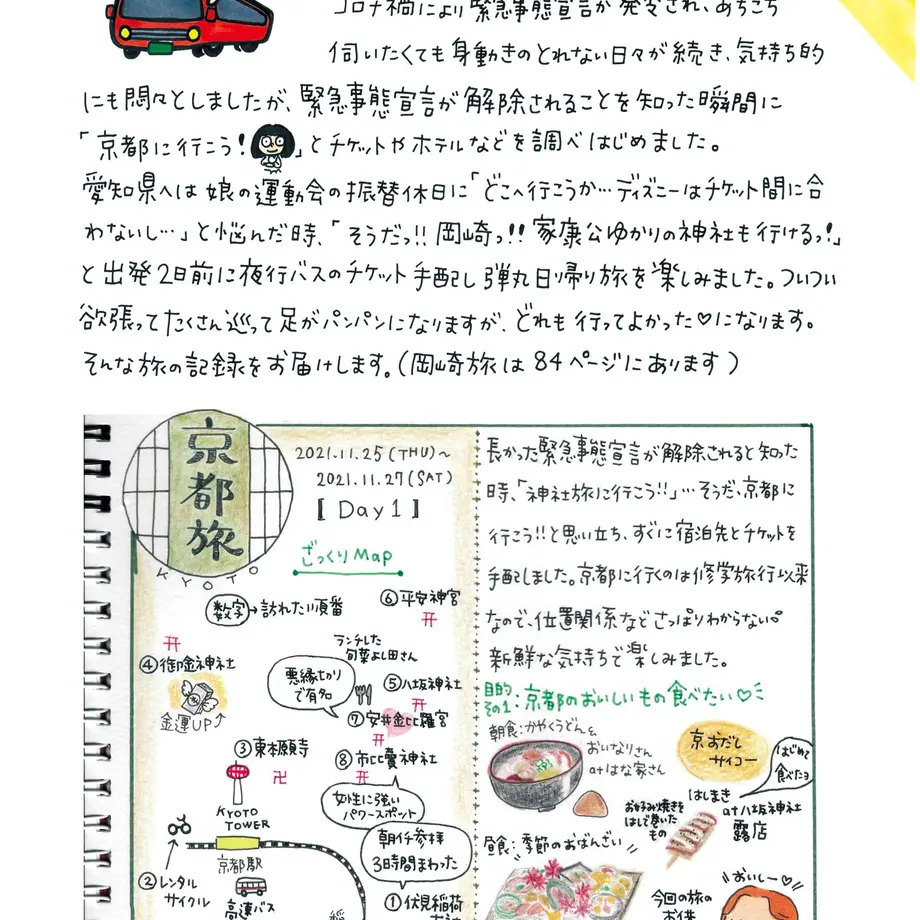 コロナ禍により緊急事態宣言が発令され、あちこち
伺いたくても身動きのとれない日々が続き、気持ち的
にも悶々としましたが、緊急事態宣言が解除されることを知った瞬間に
「京都に行こう!」とチケットやホテルなどを調べはじめました。
愛知県へは娘の運動会の振替休日に「どこへ行こうか…ディズニーはチケット間に合
わないし…」と悩んだ時、「そうだっ!!岡崎っ!!家康公ゆかりの神社も行けるっ!」
と出発2日前に夜行バスのチケット手配し弾丸日帰り旅を楽しみました。ついつい
欲張ってたくさん巡って足がパンパンになりますが、どれも行ってよかった♡になります。
そんな旅の記録をお届けします。(岡崎旅は84ページにあります)
京都旅
KYOTO
2021.11.25(THU)~
2021.11.27(SAT)
[Day1]
ざっくりMap
数字→訪れた順番
⑥平安神宮
ランチした
旬菜よし田さん
④御金神社
金運UP↑
悪縁切り
で有名
⑤八坂神社
⑦安井金比羅宮
③東本願寺
⑧市比賣神社
女性に強い
パワースポット
KYOTO
TOWER
朝イチ参拝
3時間まわった
京都駅
②レンタル
サイクル
高速バス
①伏見稲荷
長かった緊急事態宣言が解除されると知った
時、「神社旅に行こう!!」…そうだ、京都に
行こう!!と思い立ち、すぐに宿泊先とチケットを
手配しました。京都に行くのは修学旅行以来
なので、位置関係などさっぱりわからない。
新鮮な気持ちで楽しみました。
目的その1:京都のおいしいもの食べたい♡
朝食:かやくうどんと
おいなりさん
atはな家さん
京おだし
サイコー
はじめて
食べたョ
お好み焼きを
はしで巻いた
もの
はしまき
at八坂神社
露店
昼食:季節のおばんざい
おいしー♡
今回の旅の
お供